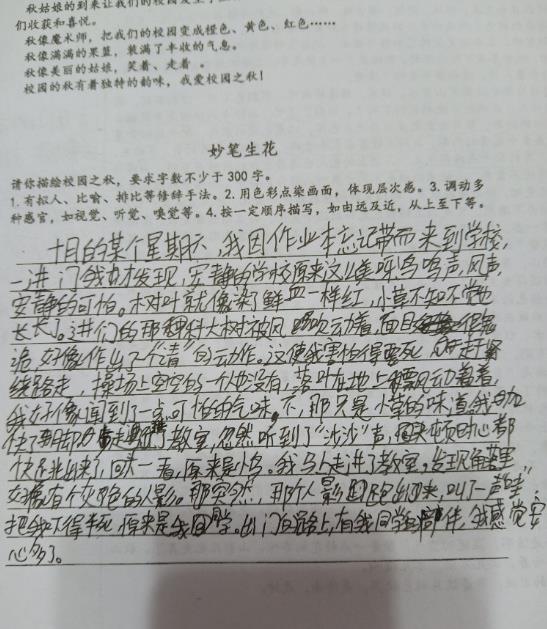 秋姑娘的到来让我们的校园
们收获和喜悦。
秋像魔术师，把我们的校园变成橙色、黄色、红色……
秋像满满的果篮，装满了丰收的气息。
秋像美丽的姑娘，笑着、走着 。
校园的秋有着独特的韵味，我爱校园之秋！
妙笔生花
请你描绘校园之秋，要求字数不少于 300 字。
1. 有拟人、比喻、排比等修辞手法。2. 用色彩点染画面，体现层次感。3. 调动多
种感官，如视觉、听觉、嗅觉等。4. 按一定顺序描写，如由远及近，从上至下等。
十月的某个星期六，我因作业本忘记带而来到学校，
一进门我才发现，安静的学校原来这么鸟鸣声，风声，
安静的可怕。树叶就像染了鲜血一样红，小草不知不觉地
长长了。进们的那种大树被风吹动着，面目
诡，好像作出了个“请”的动作。这使我害怕得要死，赶紧
绕路走，操场上空空的一个人也没有，落叶在地上飘动着，
我好像闻到了一点可怕的气味，不，那只是小草的味道，我加
快了脚步走进了教室，忽然听到了“沙沙”声，我顿时心都
快要跳出来了，回头一看，原来是小鸟。我马上走进了教室。发现角落里
好像有个灰色的人影。那突然，那个人影跑出来，叫了一声“哇”
把我吓得半死，原来是我同学。出门的路上，有我同学的陪伴，我感觉安
心多了。